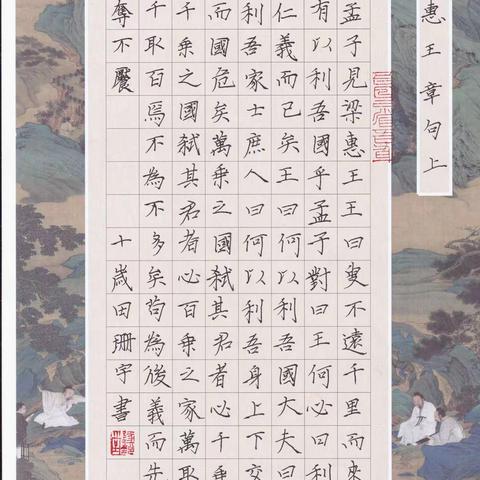 惠王章句上
孟子見梁惠王王曰叟不遠千里而來
有以利吾國乎孟子對曰王何必曰利
仁義而已矣王曰何以利吾國大夫曰
利吾家士庶人曰何以利吾身上下交
而國危矣萬乘之國弒其君者必千乘
千乘之國弒其君者必百乘之家萬取
千取百焉不為不多矣苟為後義而先
奪不饜 十歲田珊宇書